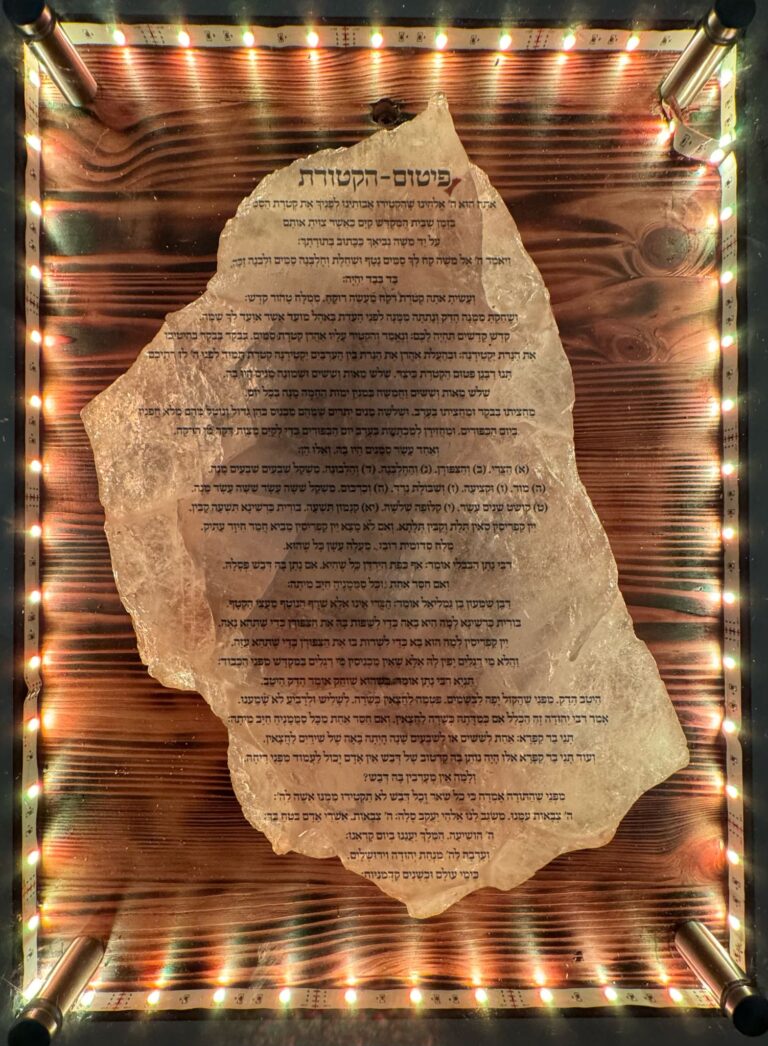 פיטום-הקטורת
אתה הוא ה' אלהינו שהקטירו אבותינו לפניך את קטרת הסמ
בזמן שבית המקדש קים כאשר צוית אותם
על יד משה נביאך ככתוב בתורתך:
ויאמר ה' אל משה קח לך סמים נטף ושחלת וחלבנה סמים ולבנה זכה
בד בבד יהיה:
ועשית אתה קטרת רקח מעשה רוקח. ממלח טהור קדש:
ושחקת ממנה הדק ונתתה ממנה לפני העדת באהל מועד אשר אועד לך שמה.
קדש קדשים תהיה לכם: ונאמר והקטיר עליו אהרן קטרת סמים. בבקר בבקר בהיטיבו
את הנרת יקטירנה: ובהעלת אהרן את הנרת בין הערבים יקטירנה קטרת תמיד לפני ה' לדרתיכם
תנו רבנן פטום הקטרת כיצד. שלש מאות וששים ושמונה מנים היו בה.
שלש מאות וששים וחמשה כמנין ימות החמה מנה בכל יום.
מחציתו בבקר ומחציתו בערב. ושלשה מנים יתרים שמהם מכניס כהן גדול ונוטל מהם מלא חפניו
ביום הכפורים. ומחזירן למכתשת בערב יום הכפורים כדי לקים מצות דקה מן הדקה.
ואחד עשר סמנים היו בה. ואלו הן:
(א) הצרי. (ב) והצפורן. (ג) והחלבנה. (ד) והלבונה. משקל שבעים שבעים מנה.
(ה) מור. (ו) וקציעה. (ז) ושבולת נרד. (ח) וכרכום. משקל ששה עשר ששה עשר מנה.
(ט) קושט שנים עשר. (י) קלופה שלשה. (יא) קנמון תשעה. בורית כרשינא תשעה קבין.
יין קפריסין סאין תלת וקבין תלתא. ואם לא מצא יין קפריסין מביא חמר חיור עתיק.
מלח סדומית רובע. מעלה עשן כל שהוא.
רבי נתן הבבלי אומר: אף כפת הירדן כל שהיא. אם נתן בה דבש פסלה.
ואם חסר אחת מכל סממניה חיב מיתה:
רבן שמעון בן גמליאל אומר: הצרי אינו אלא שרף הנוטף מעצי הקטף.
בורית כרשינא למה היא באה כדי לשפות בה את הצפורן כדי שתהא נאה.
יין קפריסין למה הוא בא כדי לשרות בו את הצפורן כדי שתהא עזה.
והלא מי רגלים יפין לה אלא שאין מכניסין מי רגלים במקדש מפני הכבוד:
תניא רבי נתן אומר: כשהוא שוחק אומר הדק היטב.
היטב הדק. מפני שהקול יפה לבשמים. פטמה לחצאין כשרה. לשליש ולרביע לא שמענו.
אמר רבי יהודה זה הכלל אם כמדתה כשרה לחצאין. ואם חסר אחת מכל סממניה חיב מיתה:
תני בר קפרא: אחת לששים או לשבעים שנה היתה באה של שירים לחצאין.
ועוד תני בר קפרא אלו היה נותן בה קרטוב של דבש אין אדם יכול לעמוד מפני ריחה.
ולמה אין מערבין בה דבש?
מפני שהתורה אמרה כי כל שאר וכל דבש לא תקטירו ממנו אשה לה':
ה' צבאות עמנו. משגב לנו אלהי יעקב סלה: ה' צבאות. אשרי אדם בטח בך:
ה' הושיעה. המלך יעננו ביום קראנו:
וערבה לה' מנחת יהודה וירושלים.
כימי עולם וכשנים קדמניות: